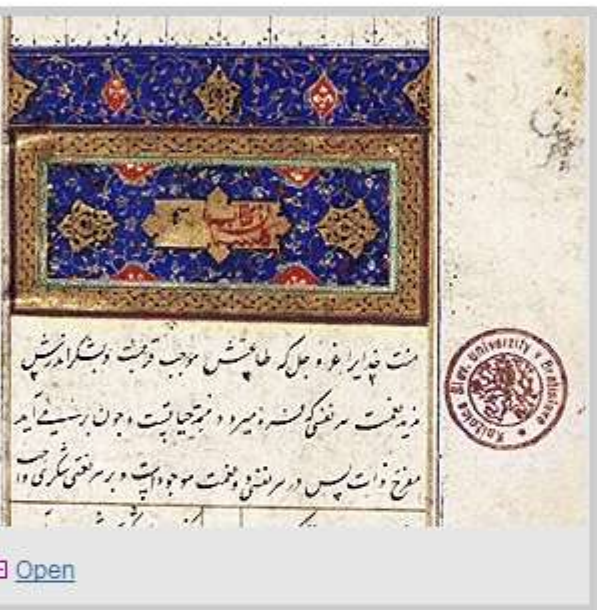 منت خدایرا عز و جل که طاعتش موجب قربتست و بشکر اندرش
مزید نعمت هر نفسی که فرو میرود ممد حیاتست و چون بر می آید
مفرح ذات پس در هر نفسی دو نعمت موجودست و بر هر نعمتی شکری واجب
Knižnica Slov. University v Bratislave
Open